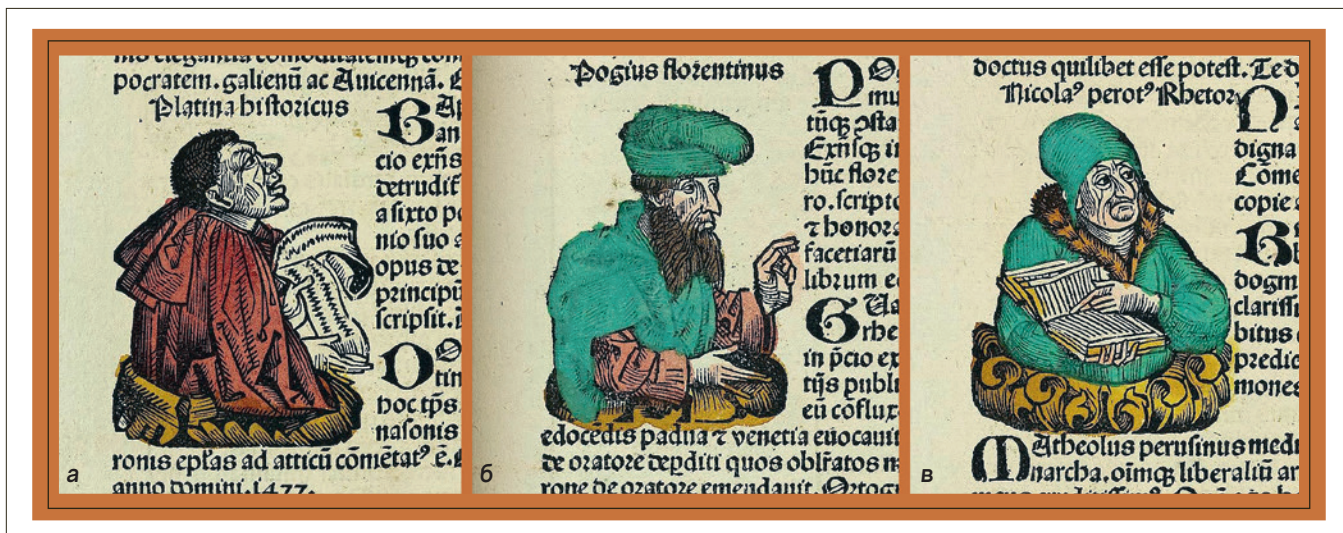 pocratem. galienū ac Auicennā.
Platina historicus
BAp
an
cio exn̄s
detrudit̄
a sixto po
nio suo a
opus de
principū
scripsit.
O
tin
hoc tp̄s
nasonis
ronis ep̄las ad atticū cōmētatꝰ ē.
anno domini. 1477.
а
Pogius florentinus
PO
mu
tūqꝫ
Exn̄sqꝫ in
hūc flore
ro. scripto
⁊ honora
facetiarū
librum e
GUa
rhe
in p̄cio ex
tijs publi
eū cōflux
edocēdis padua ⁊ venetia euocauit
de oratore deꝑditi quos obl̄ratos m
rone de oratore emendauit. Ortog
б
doctus quilibet esse potest. Te d
Nicolaꝰ perotꝰ Rhetor
N
digna
Cōme
copie
B
dogm
clariss
bitus
predic
mones
MAtheolus perusinus medi
narcha. oīmqꝫ liberaliū ar
в